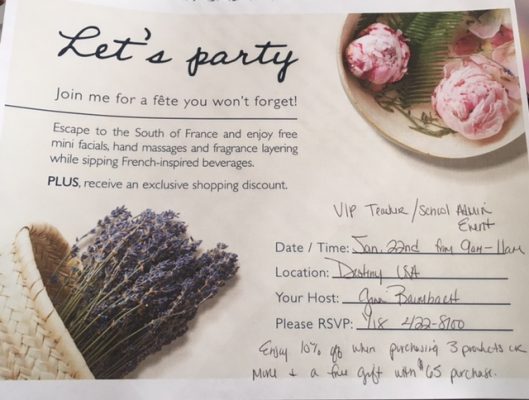 Let's party
Join me for a fête you won't forget!
Escape to the South of France and enjoy free
mini facials, hand massages and fragrance layering
while sipping French-inspired beverages.
PLUS, receive an exclusive shopping discount.
VIP Teacher/School Admin
Event
Date / Time: Jan. 22nd from 9am-11am
Location: Destiny USA
Your Host:
Please RSVP: 422-8100
Enjoy 10% off when purchasing 3 products or
more + a free gift with $65 purchase.